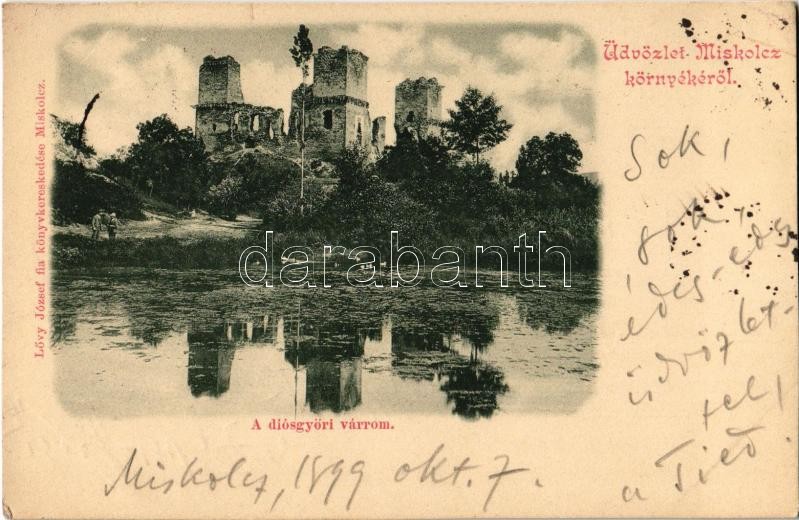 Üdvözlet Miskolcz
környékéről.
Lővy József fia könyvkereskedése Miskolcz.
darabanth
Sok,
sok,
édes-édes
üdvözlet-
tel,
a Tied
A diósgyőri várrom.
Miskolcz, 1899 okt. 7.